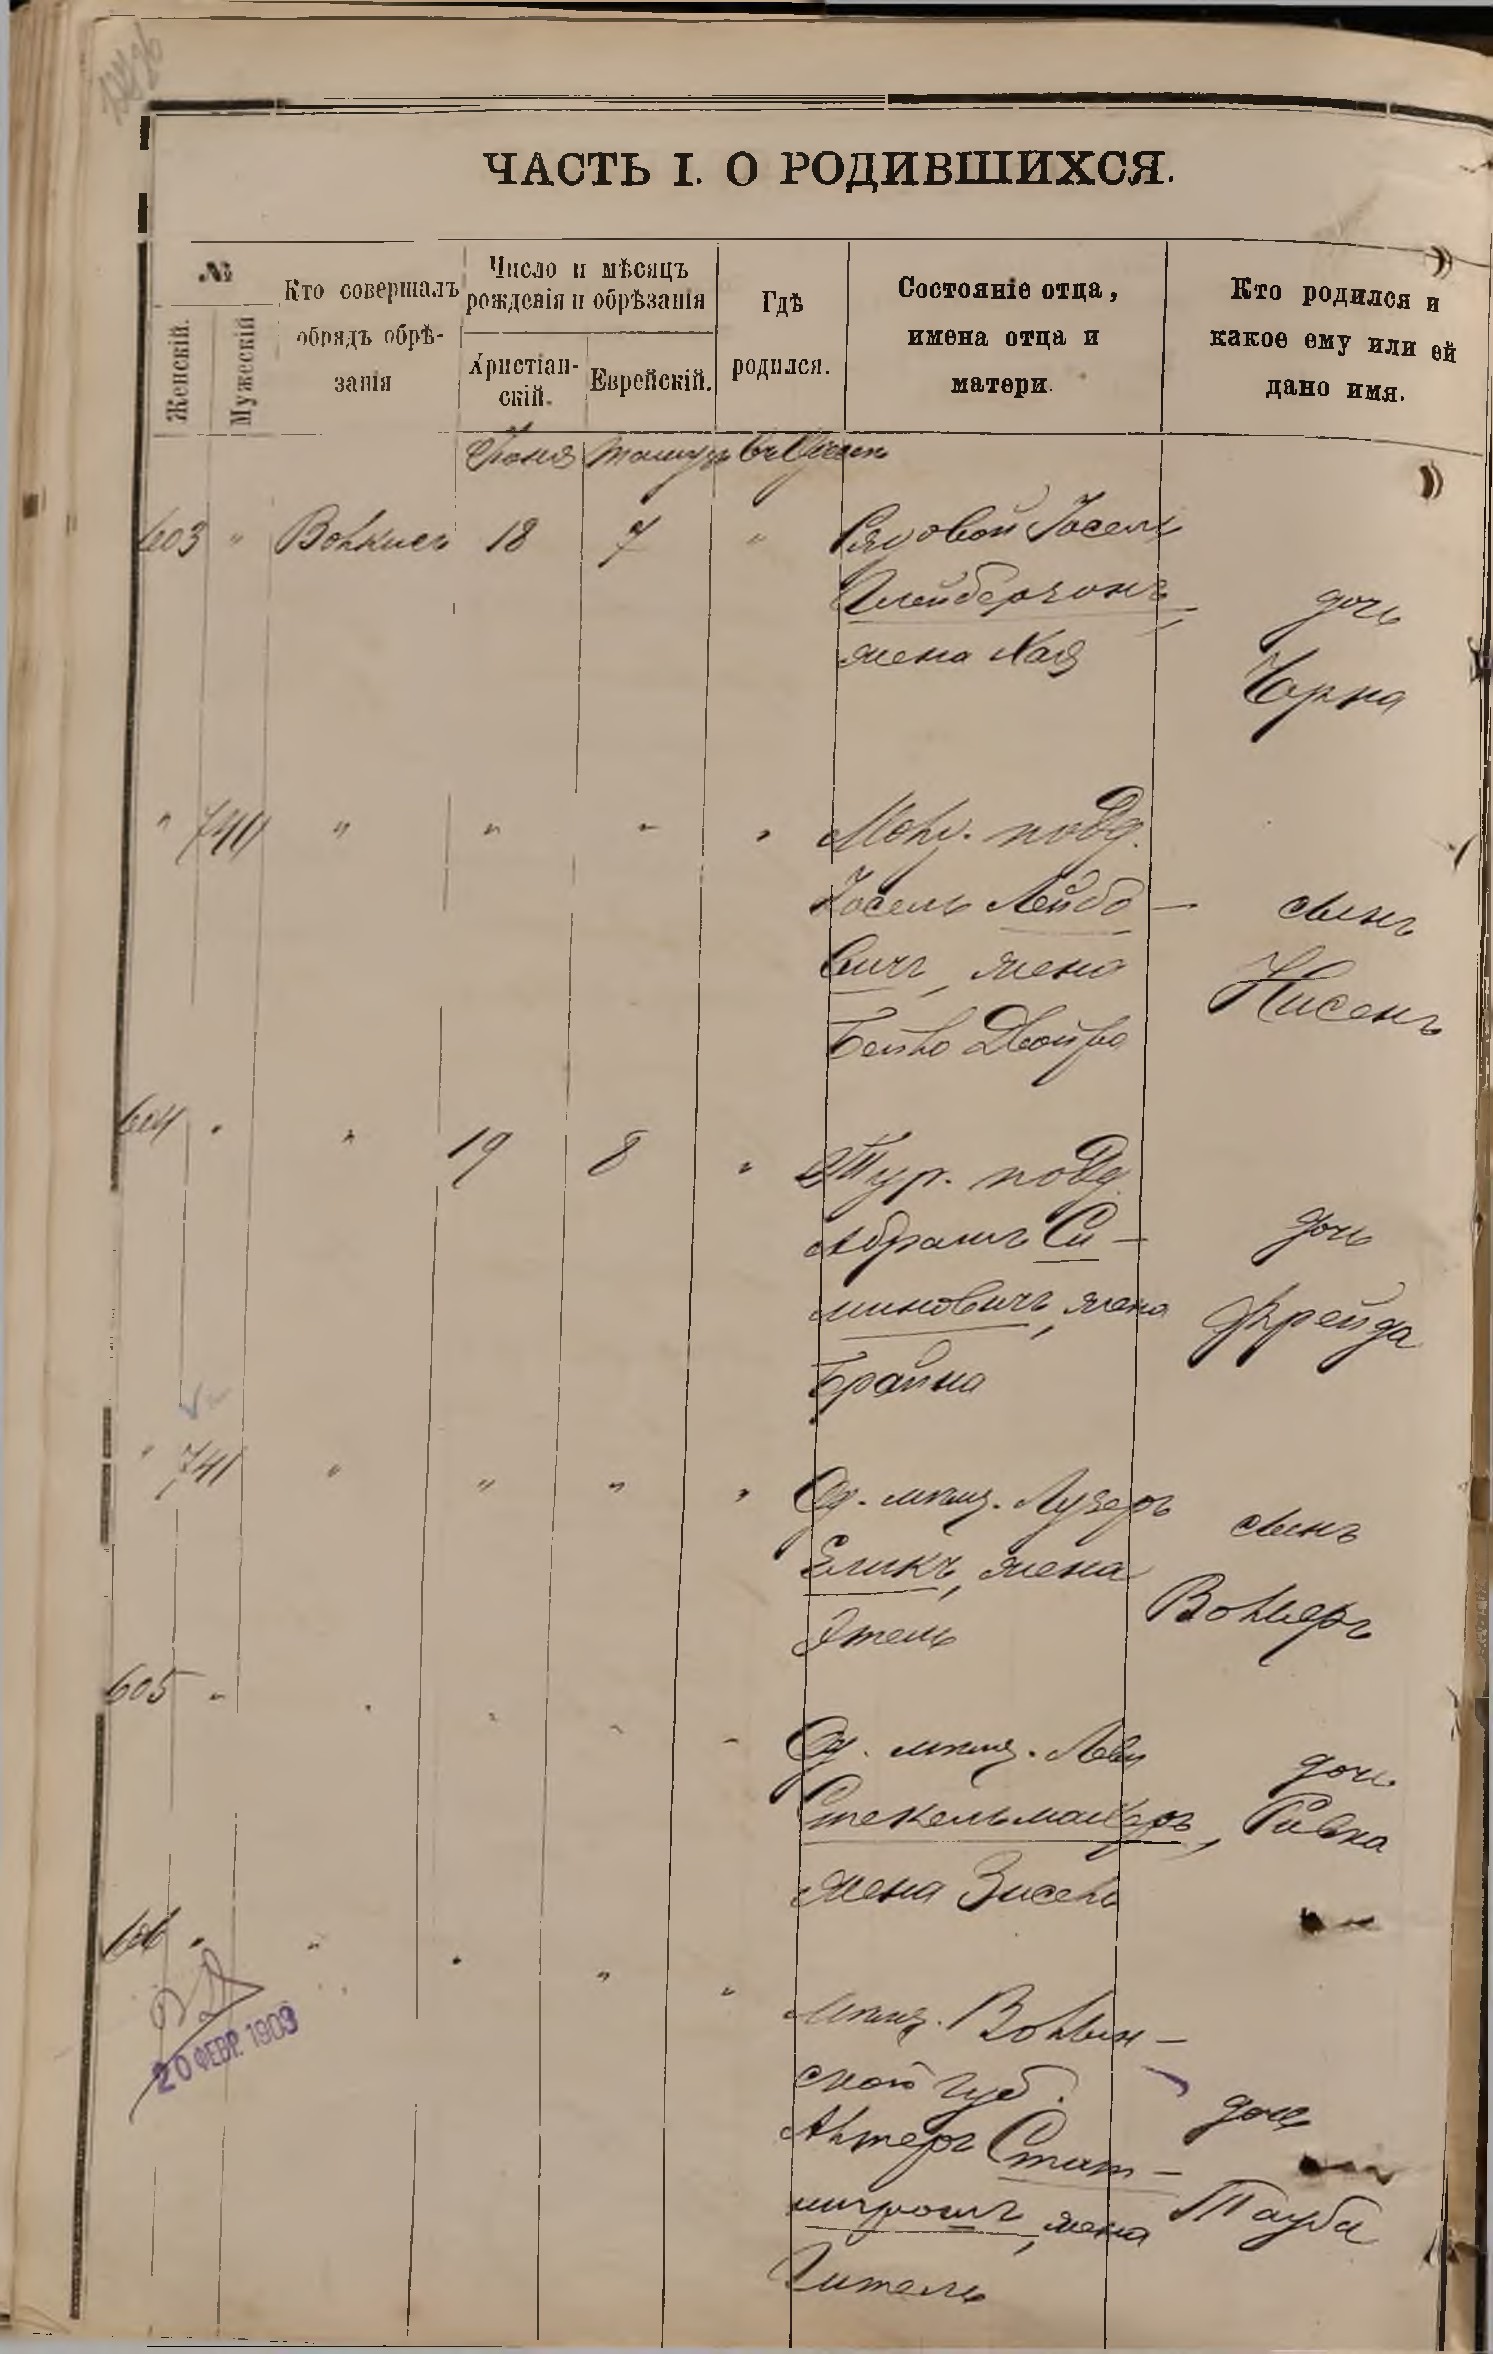 ЧАСТЬ I. О РОДИВШИХСЯ.
№
Женскій.
Мужескій
Кто совершалъ
обрядъ обрѣ-
занія
Число и мѣсяцъ
рожденія и обрѣзанія
Христіан-
скій.
Еврейскій.
Гдѣ
родился.
Состояніе отца,
имена отца и
матери.
Кто родился и
какое ему или ей
дано имя.
Іюня
603 " 18 7 " Рядовой Іосель
Глейберзонъ,
жена Хая
дочь
Чарна
" 740 " " " " подд.
Іосель Лейбо-
вичъ, жена
Бейла Двойра
сынъ
Нисенъ
604 " " 19 8 " Тур. подд.
Абрамъ Си-
миновичъ, жена
Брайна
дочь
Фрейда
" 741 " " " " Од. мѣщ. Лузеръ
Еликъ, жена
Этель
сынъ
Вольеръ
605 " " " " " Од. мѣщ. Леви
Стекельмахеръ,
жена Зисель
дочь
Ривка
606 " " " " " Мѣщ. Волын-
ской губ.
Альтеръ
жена
Гитель
дочь
Тауба
20 ФЕВР. 1903